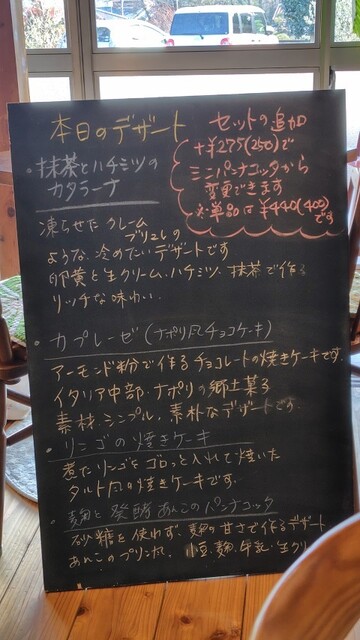 本日のデザート
セットの追加
+¥275(250)で
ミニパンナコッタから
変更できます
※単品は¥440(400)
です
・抹茶とハチミツの
カタラーナ
凍らせたクレーム
ブリュレの
ような、冷めたいデザートです
卵黄と生クリーム、ハチミツ、抹茶で作る
リッチな味わい。
・カプレーゼ(ナポリ風チョコケーキ)
アーモンド粉で作るチョコレートの焼きケーキです
イタリア中部・ナポリの郷土菓子
素材、シンプル、素朴なデザートです。
・リンゴの焼きケーキ
煮たリンゴをゴロっと入れて焼いた
タルト風の焼きケーキです。
・麹と発酵あんこのパンナコッタ
砂糖を使わず、麹の甘さで作るデザート
あんこのプリン風、小豆、麹、牛乳、生クリ